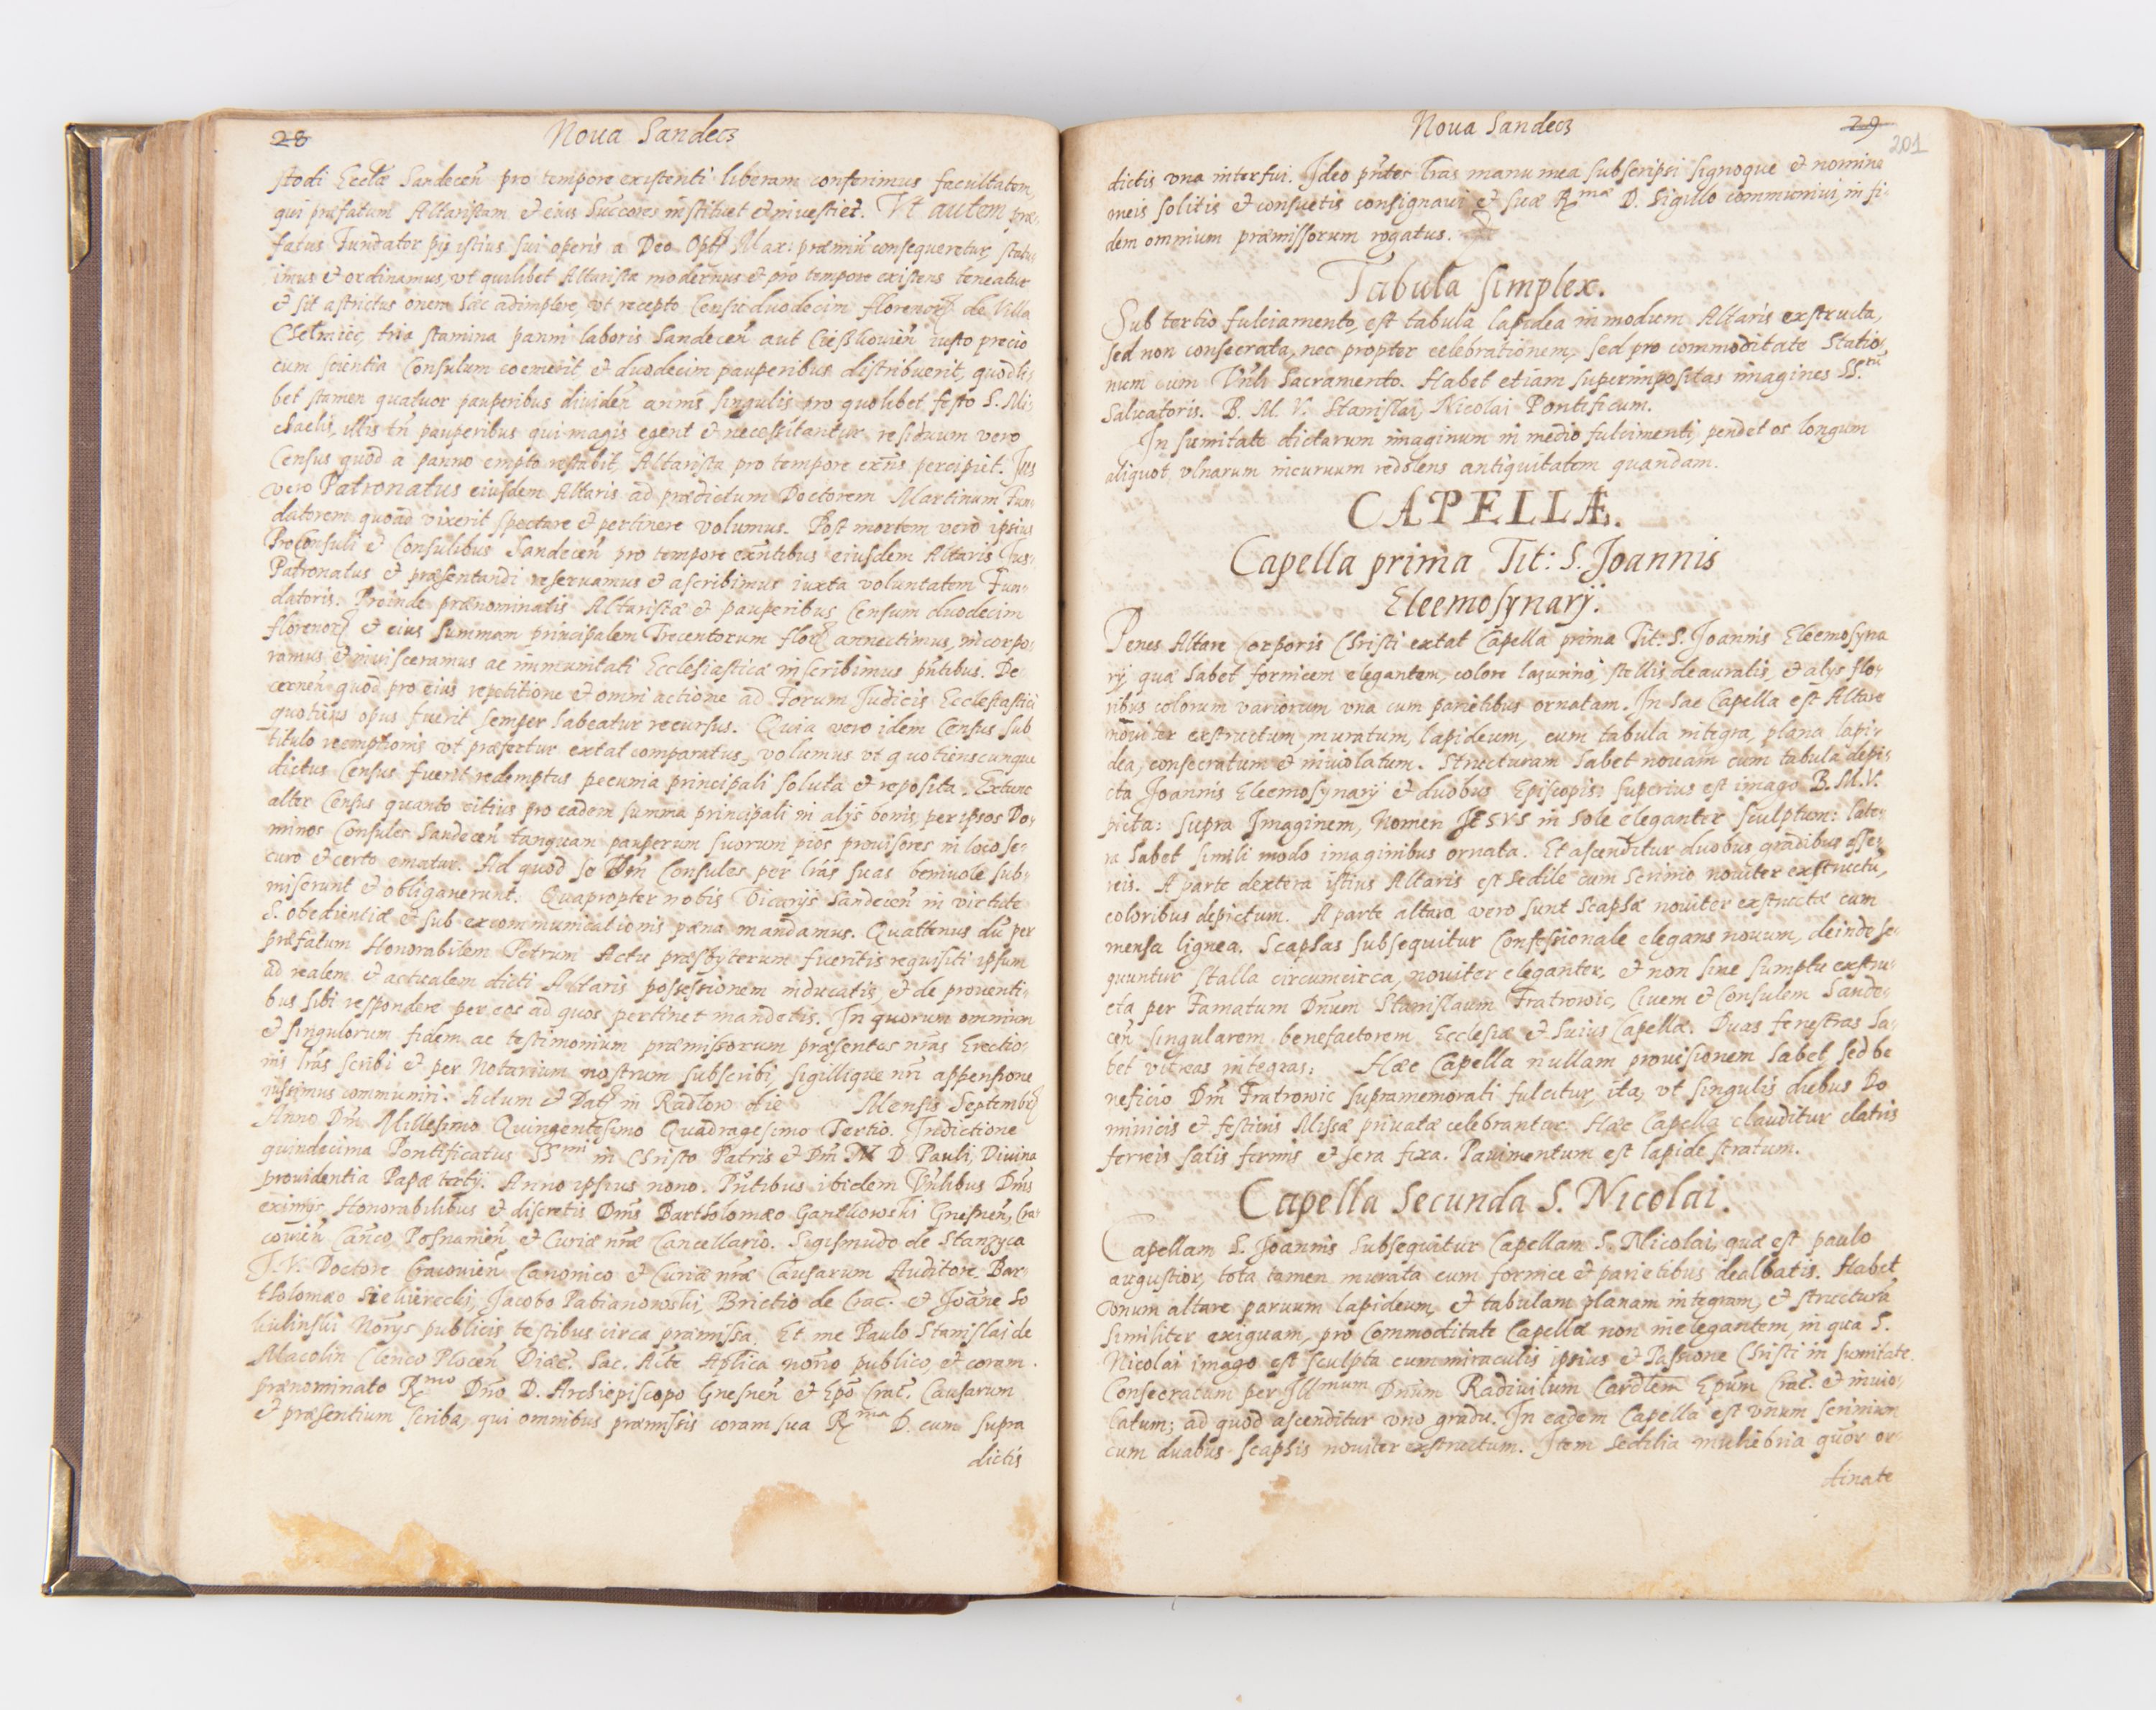 28
Noua Sandecz
stodi Ecclæ Sandeceñ pro tempore existenti liberam conferimus facultatem,
qui præfatum Altaristam et eius Succores instituet et inuestiet. Vt autem præ-
fatus Fundator pij istius sui operis a Deo Opt Max: præmiũ consequeretur, statu-
imus et ordinamus, vt quilibet Altarista modernus et pro tempore existens teneatur
et sit astrictus onera hæc adimplere, vt recepto Censu duodecim florenorꝝ de Villa
Chełmiec, tria stamina panni laboris Sandeceñ aut Cieszkowieñ iusto precio
cum scientia Consulum coemerit et duodecim pauperibus distribuerit, quodli-
bet stamen quatuor pauperibus diuideñ annis singulis pro quolibet festo S. Mi-
chaelis, illis tñ pauperibus qui magis egent et necessitantur residuum vero
Census quod a panno empto restabit, Altarista pro tempore exñs percipiet. Jus
vero Patronatus eiusdem Altaris ad prædictum Doctorem Martinum Fun-
datorem quoad vixerit spectare et pertinere volumus. Post mortem vero ipsius
ProConsuli et Consulibus Sandeceñ pro tempore exñtibus eiusdem Altaris Jus
Patronatus et præsentandi reseruamus et ascribimus iuxta voluntatem Fun-
datoris. Proinde prænominatis Altaristæ et pauperibus Censum duodecim
florenorꝝ et eius summam principalem Trecentorum florꝝ annectimus, incorpo-
ramus, et inuisceramus ac immunitati Ecclesiasticæ inscribimus pñtibus. De-
cerneñ quod pro eius repetitione et omni actione ad Forum Judicis Ecclesiastici
quotiens opus fuerit semper habeatur recursus. Quia vero idem Census sub
titulo reemptionis vt præfertur extat comparatus, volumus vt quotienscunque
dictus Census fuerit redemptus pecunia principali soluta et reposita. Extunc
alter Census quanto citius pro eadem summa principali in alijs bonis per ipsos Do-
minos Consules Sandeceñ tanquam pauperum suorum pios prouisores in loco se-
curo et certo ematur. Ad quod se Dñi Consules per lrãs suas beniuole sub-
miserunt et obligauerunt. Quapropter nobis Vicarijs Sandeceñ in virtute
S. obedientiæ et sub excommunicationis pæna mandamus. Quattenus dũ per
præfatum Honorabilem Petrum Actu præsbyterum fueritis requisiti ipsum
ad realem et actualem dicti Altaris possessionem inducatis et de prouenti-
bus sibi respondere per eos ad quos pertinet mandetis. In quorum omnium
et singulorum fidem ac testimonium præmissorum præsentes nrãs Erectio-
nis lrãs scribi et per Notarium nostrum subscribi, sigillique nri appensione
iussimus communiri. Actum et Datꝝ in Radłow die Mensis Septembrꝝ
Anno Dñi Millesimo Quingentesimo Quadragesimo Tertio. Indictione
quindecima Pontificatus SSmi in Christo Patris et Dñi D. Pauli, Diuina
prouidentia Papæ tertij. Anno ipsius nono. Pñtibus ibidem Vñlibus Dñis
eximijs, Honorabilibus et discretis Dñis Bartholomæo Gantkowski Gnesneñ, Cra-
couieñ Canco, Posnanieñ, et Curiæ nræ Cancellario. Sigismũdo de Stanzyca
J. V. Doctore Cracouieñ Canonico et Curiæ nræ Causarum Auditore. Bar-
tholomæo Siekierecki, Jacobo Pabianowski, Brictio de Crac. et Joãne So
kulinski Noriis publicis testibus circa præmissa. Et me Paulo Stanislai de
Macolin Clerico Plocen Diæc. Sac. Actẽ Aplica notrio publico, et coram
prænominato Rmo Dño D. Archiepiscopo Gnesneñ et Epo Crac. Causarum
et præsentium scriba, qui omnibus præmissis coram sua Rma D. cum supra
dictis
Noua Sandecz
29
201
dictis vna interfui. Ideo pñtes lrãs manu mea subscripsi signoque et nomine
meis solitis et consuetis consignaui et suæ Rmæ D. Sigillo communiui, in fi-
dem omnium præmissorum rogatus.
Tabula simplex.
Sub tertio fulciamento, est tabula lapidea in modum Altaris exstructa,
sed non consecrata, nec propter celebrationem, sed pro commoditate Statio-
num cum Vñli Sacramento. Habet etiam superimpositas imagines SS.
Saluatoris. B. M. V. Stanislai, Nicolai Pontificum.
In sumitate dictarum imaginum in medio fulcimenti, pendet os longum
aliquot vlnarum incuruum redolens antiquitatem quandam.
CAPELLÆ.
Capella prima Tit: S. Joannis
Eleemosynarij.
Penes Altare Corporis Christi extat Capella prima Tit: S. Joannis Eleemosyna
rij, quæ habet fornicem elegantem, colore lazurino, stellis deauratis, et alijs flo-
ribus colorum variorum vna cum parietibus ornatam. In hac Capella est Altare
nouiter exstructum, muratum, lapideum, cum tabula integra, plana lapi-
dea, consecratum et inuiolatum. Structuram habet nouam cum tabula depi-
cta Joannis Eleemosynarij et duobus Episcopis: superius est imago B. M. V.
picta: supra Imaginem, Nomen JESVS in Sole eleganter sculptum: late-
ra habet simili modo imaginibus ornata. Et ascenditur duobus gradibus asse-
reis. A parte dextera istius Altaris est Sedile cum Scrinio nouiter exstructũ,
coloribus depictum. A parte altera vero sunt Scaphæ nouiter exstructæ cum
mensa lignea. Scaphas subsequitur Confessionale elegans nouum, deinde se-
quuntur Stalla circumcirca, nouiter eleganter, et non sine sumptu exstru-
cta per Famatum Dñum Stanislaum Fratrowic, Ciuem et Consulem Sande-
ceñ singularem benefactorem Ecclesiæ et huius Capellæ. Duas fenestras ha-
bet vitreas integras. Hæc Capella nullam prouisionem habet, sed be
neficio Dñi Fratrowic supramemorati fulcitur, ita, vt singulis diebus Do
minicis et festiuis Missæ priuatæ celebrantur. Hæc Capella clauditur clatris
ferreis satis firmis et sera fixa. Pauimentum est lapide stratum.
Capella Secunda S. Nicolai.
Capellam S. Joannis subsequitur Capellam S. Nicolai, quæ est paulo
angustior, tota tamen murata cum fornice et parietibus dealbatis. Habet
vnum altare paruum lapideum, et tabulam planam integram, et structurã
similiter exiguam, pro Commoditate Capellæ non inelegantem, in qua S.
Nicolai imago est sculpta cum miraculis ipsius et Passione Christi in sumitate.
Consecratum per Illmum Dñum Radiuilum Cardlem Epum Crac. et inuio-
latum; ad quod ascenditur vno gradu. In eadem Capella est vnum scrinium
cum duabus scaphis nouiter exstructum. Item Sedilia muliebria quor or-
dinate